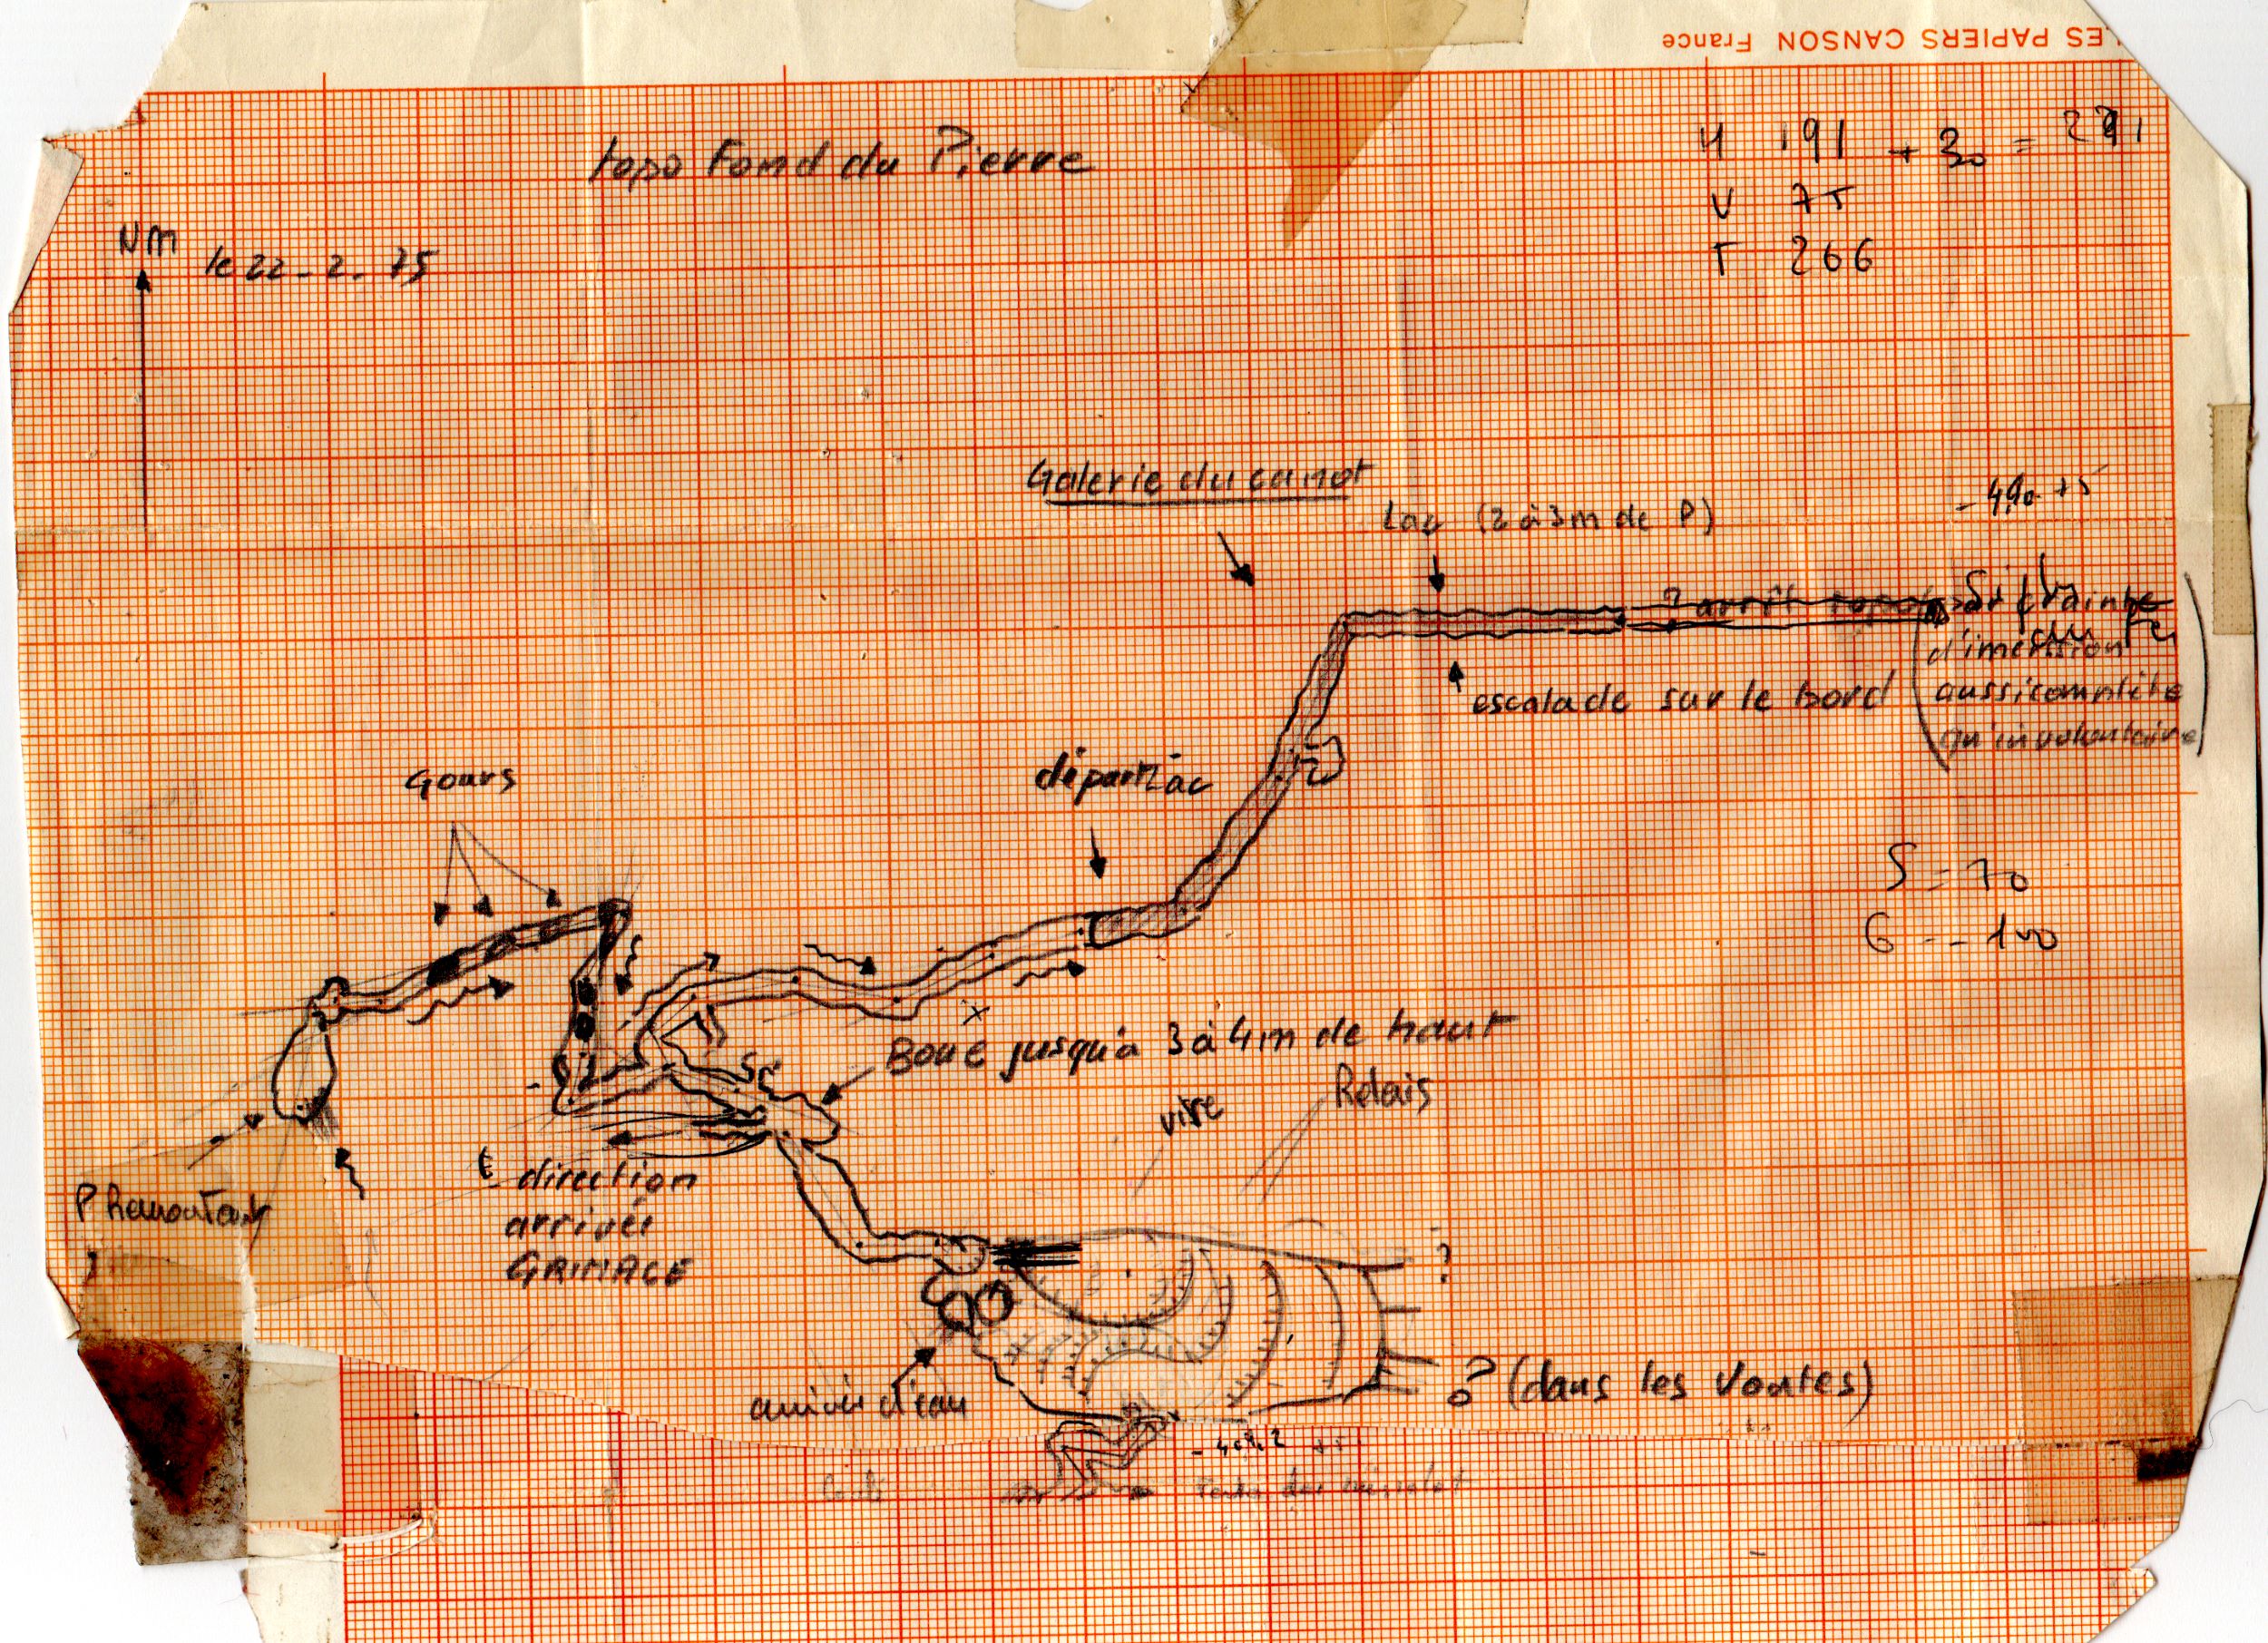 LES PAPIERS CANSON France
topo Fond du Pierre
H 191 + 30 = 291
V 75
T 266
NM
le 22-2-75
Galerie du canot
Lac (2 à 3m de P)
? arrêt topo
d'imertion
aussi complète
qu'involontaire
escalade sur le bord
départ Lac
Gours
S - 70
G - - 100
Boue jusqu'à 3 à 4m de haut
Sc
vire
Relais
direction
arrivée
GRIMACE
P Remontant
?
? (dans les Voutes)
arrivée d'eau